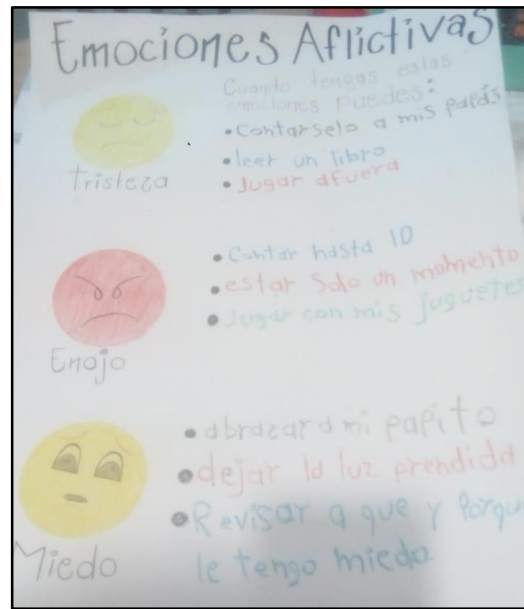 Emociones Aflictivas
Cuando tengas estas
emociones puedes:
• Contarselo a mis papás
• leer un libro
• Jugar afuera
Tristeza
• Contar hasta 10
• estar solo un momento
• Jugar con mis juguetes
Enojo
• abrazar a mi papito
• dejar la luz prendida
• Revisar a que y Porqu
le tengo miedo
Miedo